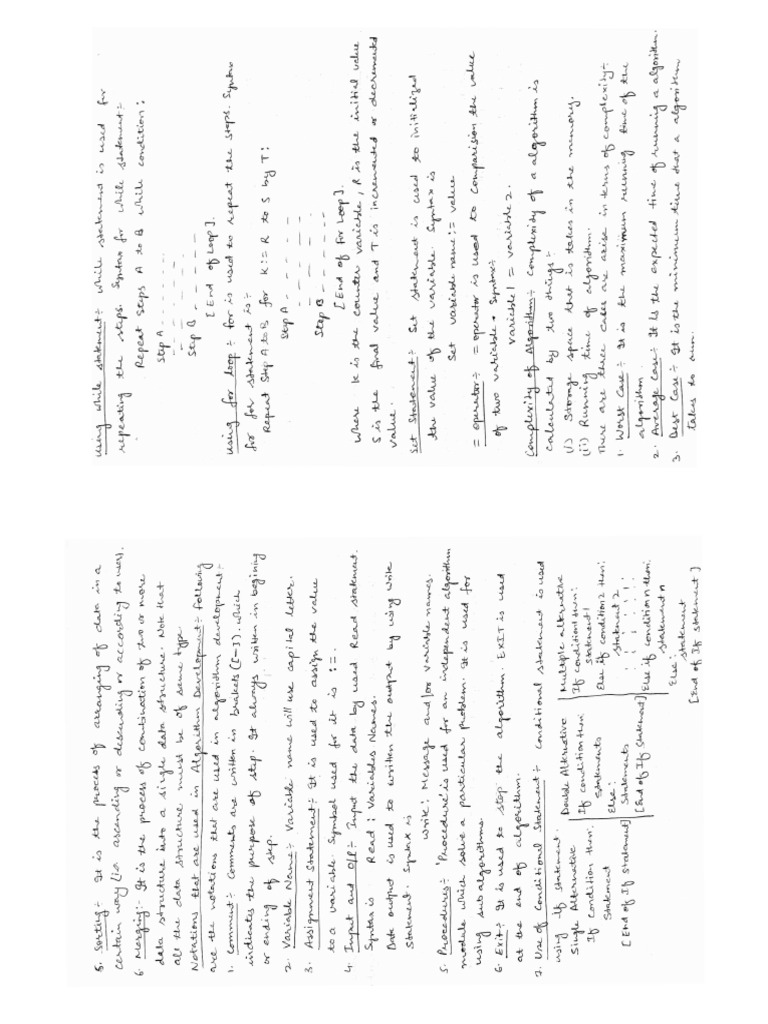 5. Sorting:- It is the process of arranging of data in a
certain way (ie ascending or descending or according to user).
6. Merging:- It is the process of combination of two or more
data structure into a single data structure. Note that
all the data structure must be of same type.
Notations that are used in Algorithm Development:- following
are the notations that are used in algorithm development:-
1. Comment:- Comments are written in brackets [ - ]. which
indicates the purpose of step. It always written in begining
or ending of step.
2. Variable Name:- Variable name will use capital letter.
3. Assignment Statement:- It is used to assign the value
to a variable. Symbol used for it is :=.
4. Input and O/P:- Input the data by used Read statement.
Syntax is Read : Variables Names.
Data output is used to written the output by using write
statement. Syntax is
write : Message and/or variable names.
5. Procedures:- 'Procedure' is used for an independent algorithm
module which solve a particular problem. It is used for
using sub algorithms.
6. Exit:- It is used to stop the algorithm. EXIT is used
at the end of algorithm.
7. Use of Conditional Statement:- conditional statement is used
using if statement.
Single Alternative
If condition then:
Statement
[End of If statement]
Double Alternative
If condition then:
Statements
Else:
Statements
[End of If statement]
Multiple alternative
If condition 1 then:
Statement 1
Else if condition 2 then:
statement 2
Else if condition n then:
statement n
Else:
statement
[End of If statement]
using while statement:- while statement is used for
repeating the steps. Syntax for while statement:-
Repeat Steps A to B while condition :
Step A - - - - -
- - - - - -
Step B - - - - - -
[End of Loop].
using for loop:- for is used to repeat the steps. Syntax
for for statement is:-
Repeat Step A to B for K:= R to S by T:
Step A - - - - - -
- - - - -
Step B - - - - - -
[End of For Loop].
where K is the counter variable, R is the initial value
S is the final value and T is incremented or decremented
value.
Set Statement:- Set statement is used to initialized
the value of the variable. Syntax is
Set variable name := value
= operator:- = operator is used to comparision the value
of two variable. Syntax:-
variable 1 = variable 2.
Complexity of Algorithm:- Complexity of a algorithm is
calculated by two things:-
(i) Storage space that is takes in the memory.
(ii) Running time of algorithm.
There are three cases are arise in terms of complexity:-
1. Worst Case:- It is the maximum running time of the
algorithm.
2. Average Case:- It is the expected time of running a algorithm.
3. Best Case:- It is the minimum time that a algorithm
takes to run.